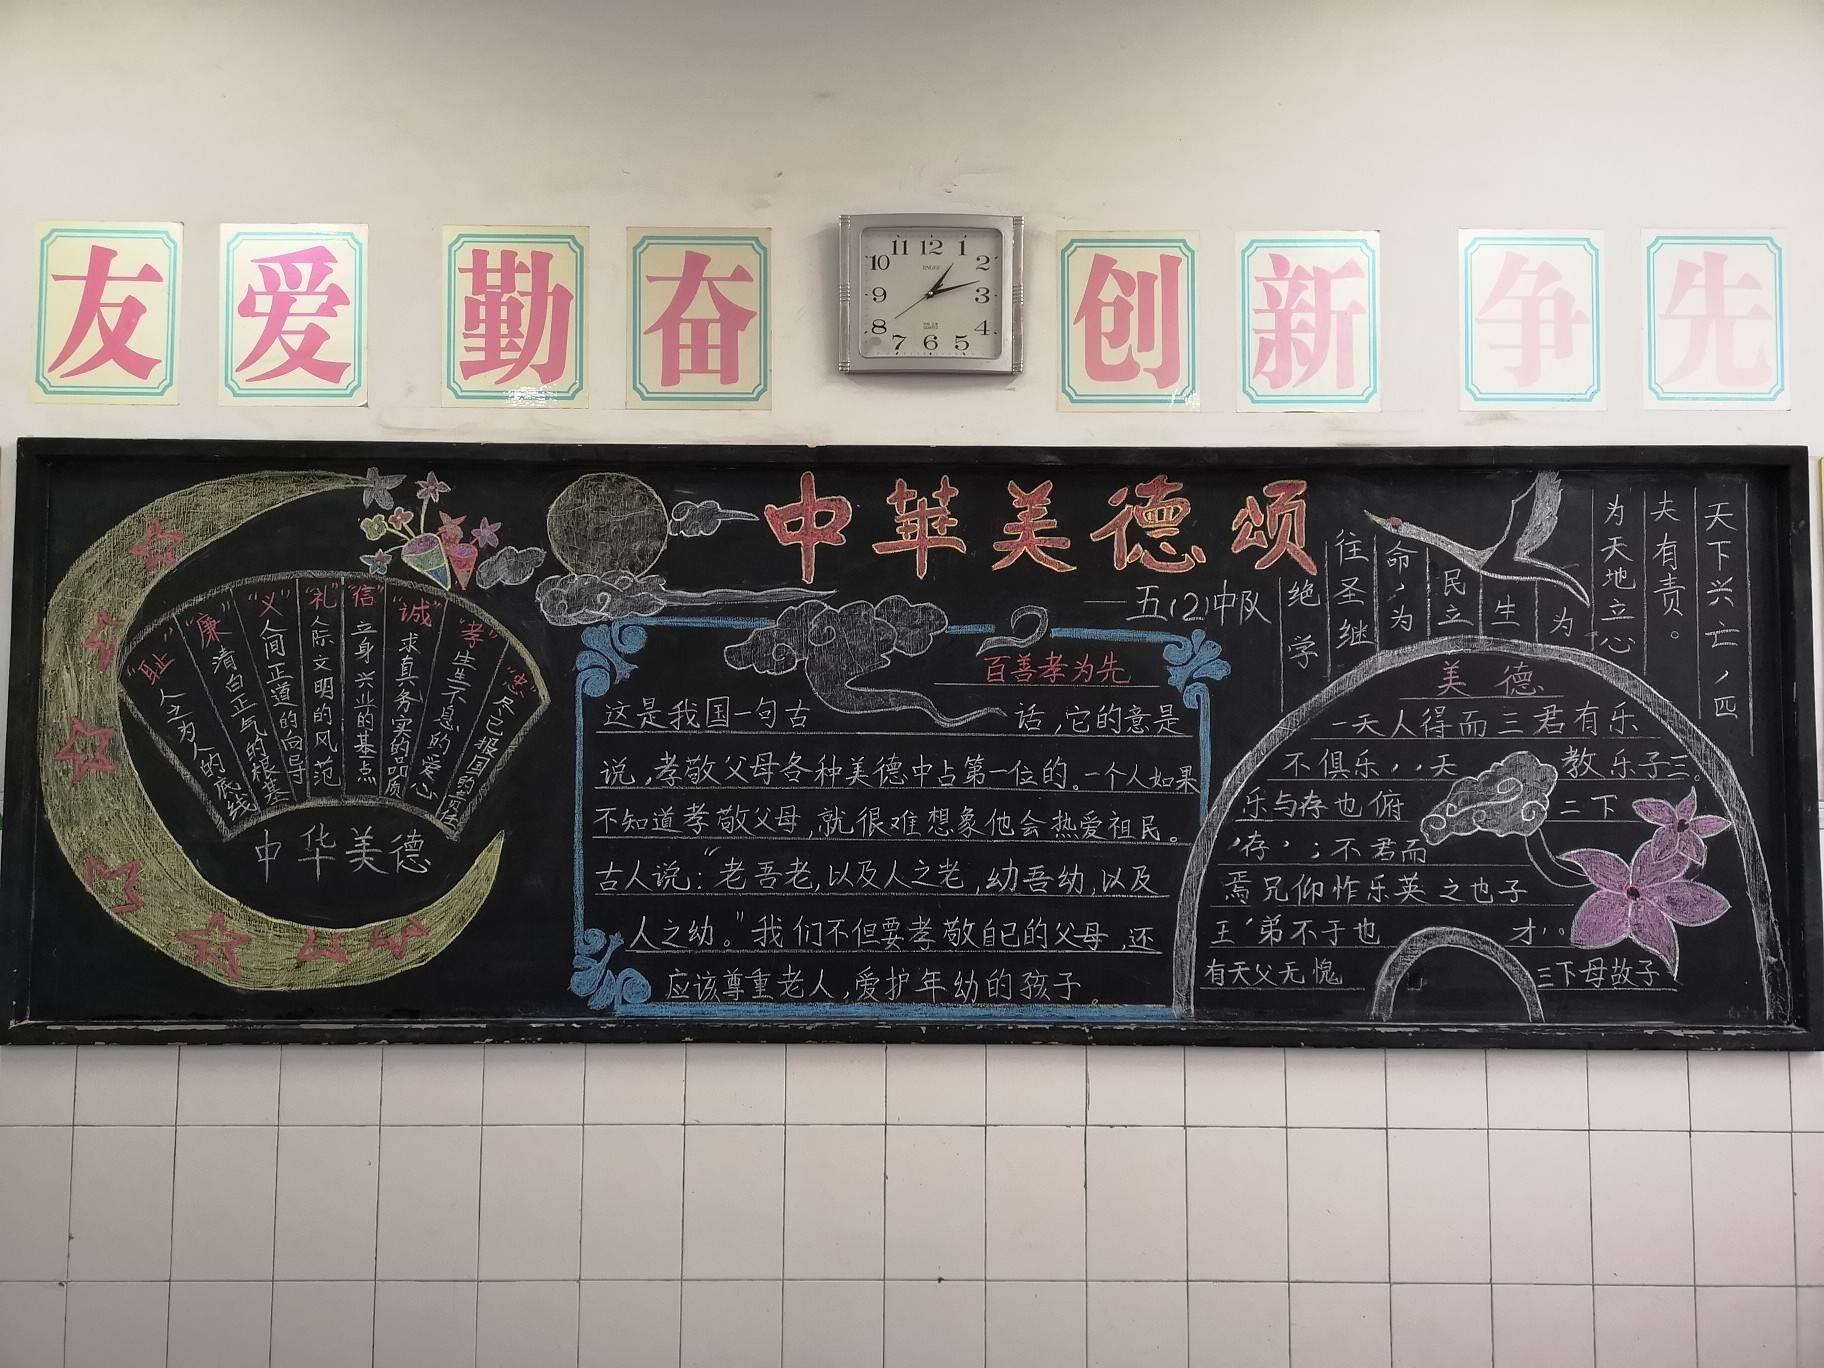 友爱 勤奋 创新 争先
11 12 1
10 2
9 3
8 4
7 6 5
中華美德颂
——五(2)中队
"耻"人之为人的底线
"廉"清白正气的根基
"义"人间正道的向导
"礼"人际文明的风范
"信"立身兴业的基点
"诚"求真务实的品质
"孝"生生不息的爱心
"忠"尽己报国的责任
中华美德
百善孝为先
这是我国一句古 话,它的意是
说,孝敬父母各种美德中占第一位的。一个人如果
不知道孝敬父母,就很难想象他会热爱祖民。
古人说:"老吾老,以及人之老,幼吾幼,以及
人之幼。"我们不但要孝敬自己的父母,还
应该尊重老人,爱护年幼的孩子。
天下兴亡,匹
夫有责。
为天地立心
为
生
民立
命,为
往圣继
绝学
美德
一天人得而三君有乐
不俱乐,,天 教乐子三。
乐与存也俯 二下
,存,;不君而
焉兄仰怍乐英 之也子
王,弟不于也 才,。
有天父无愧 三下母故子